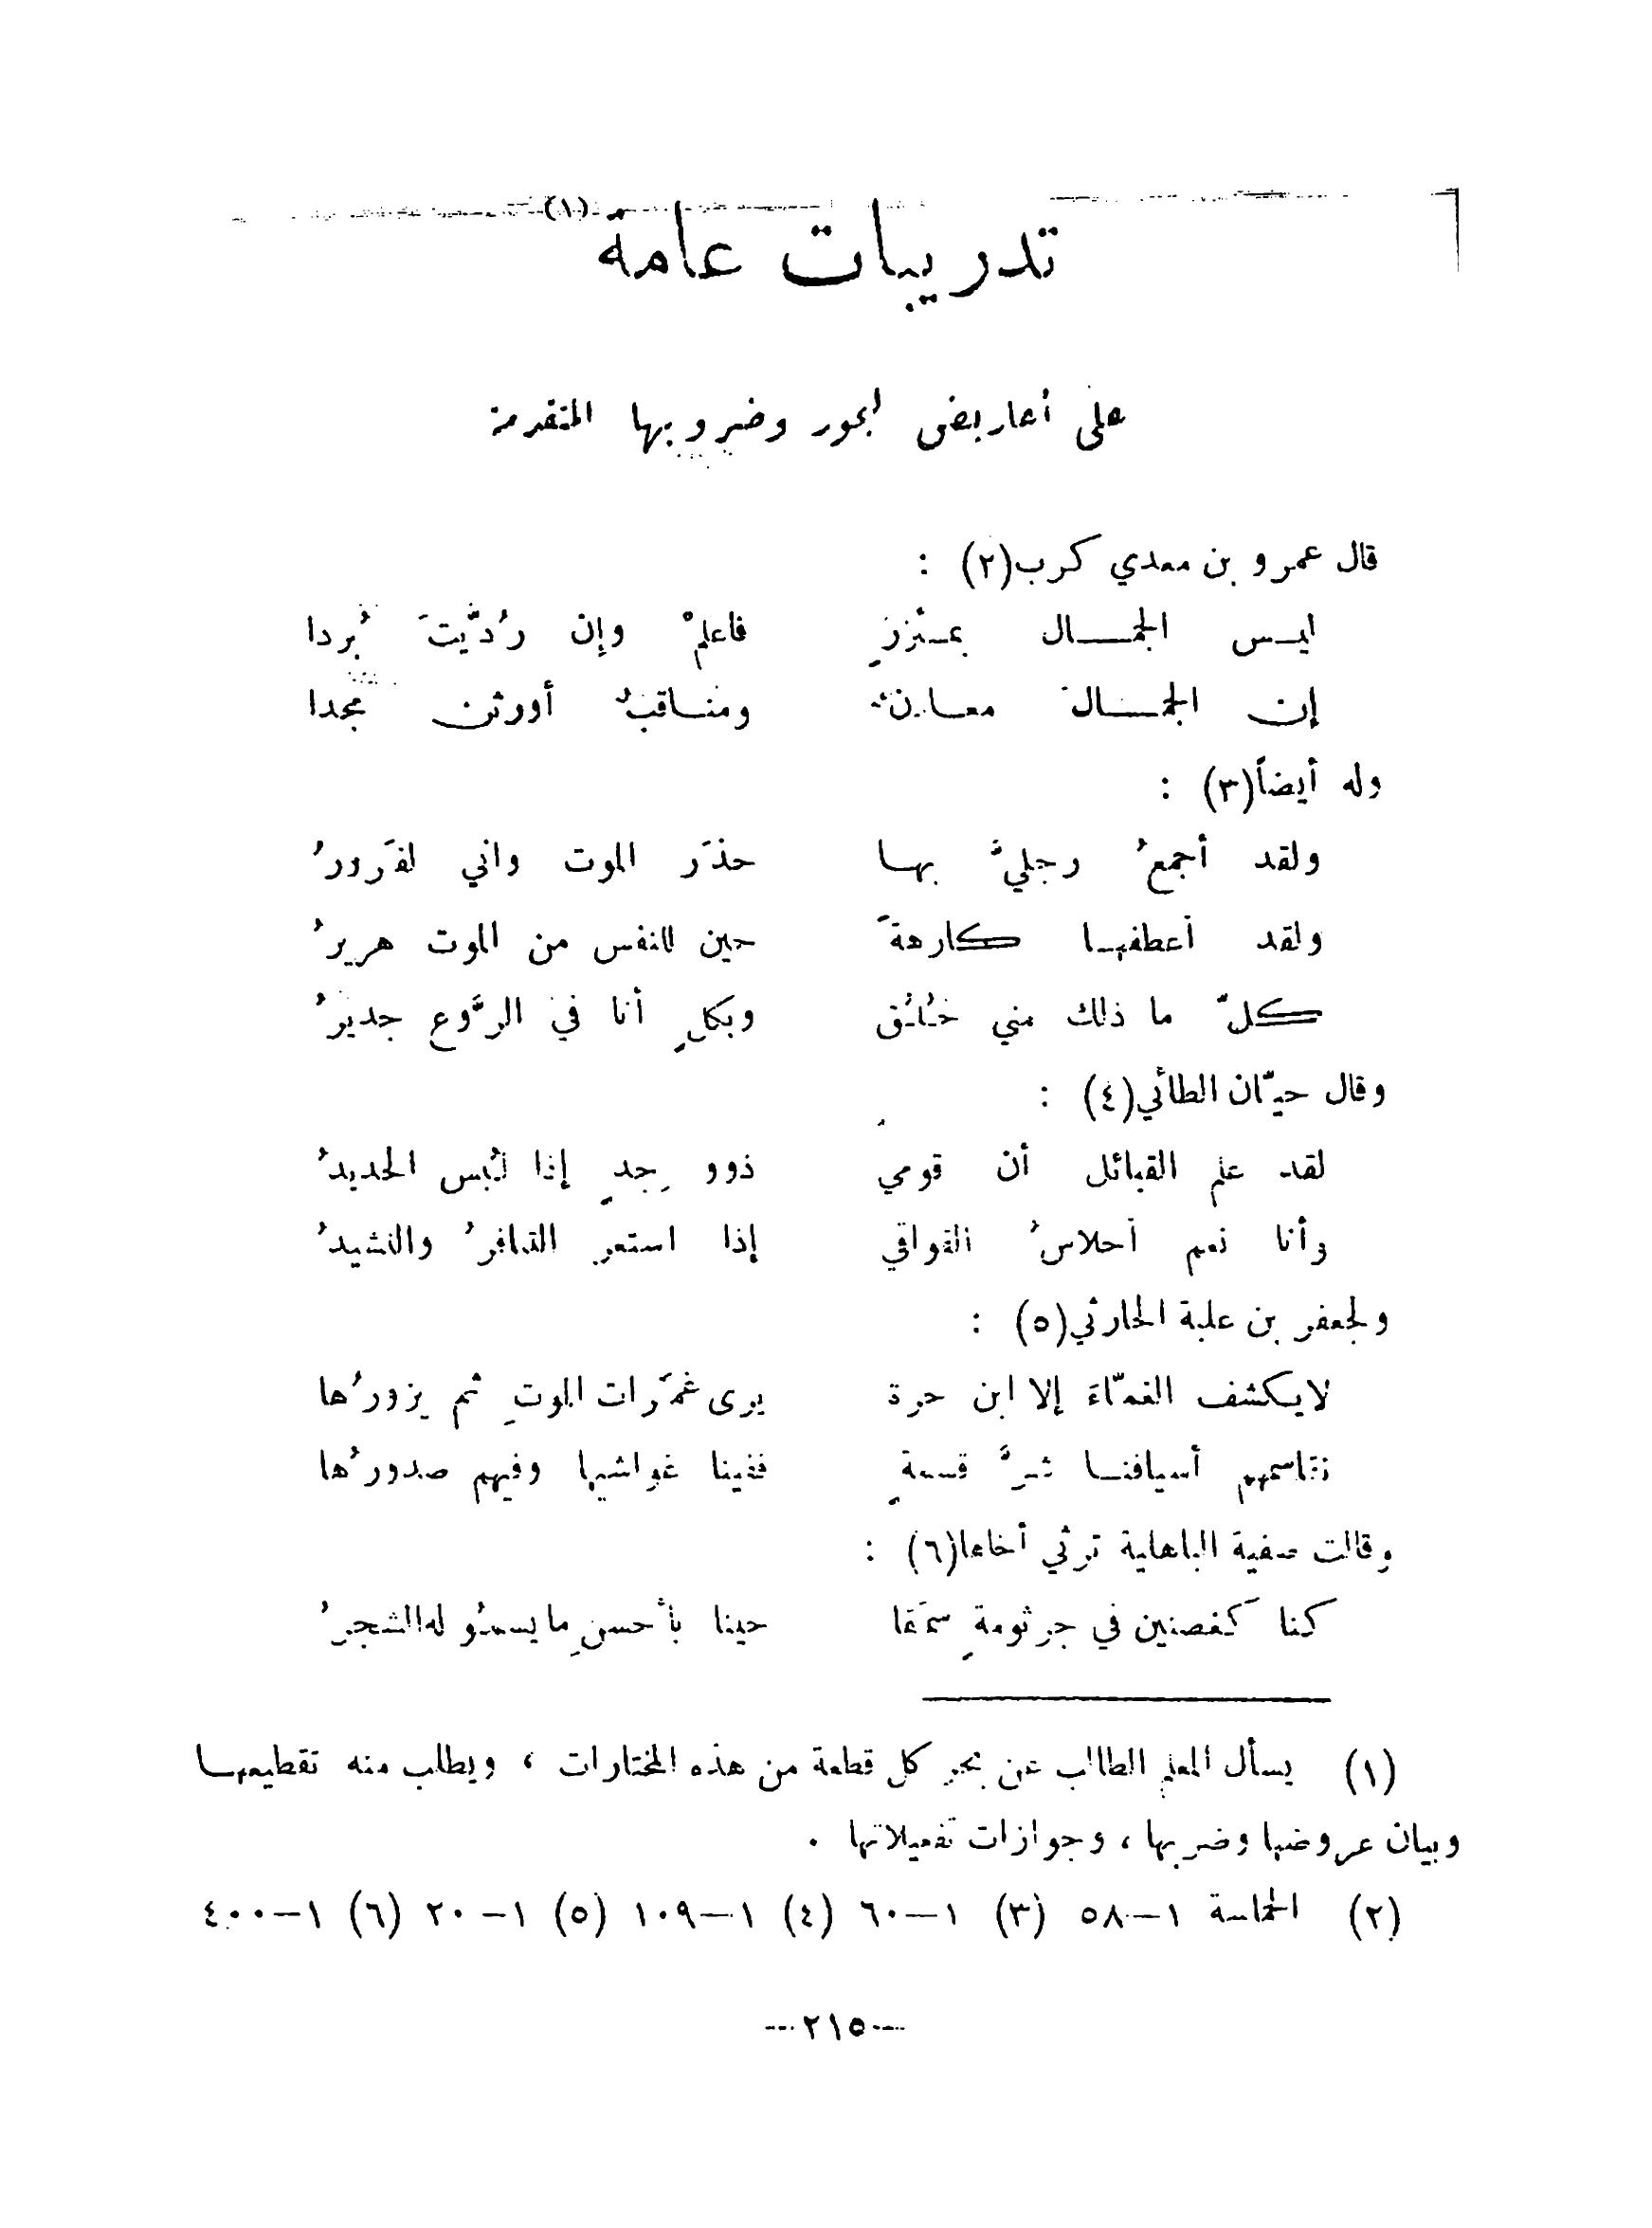 تدريبات عامة (١)
على أعاريض البحور وضروبها المتقدمة
قال عمرو بن معدي كرب(٢) :
ليس الجمال بمئزرٍ فاعلمْ وإن رُدّيتَ بُردا
إن الجمالَ معادنٌ ومناقبٌ أورثن مجدا
وله أيضاً(٣) :
ولقد أجمعُ رجليَّ بها حذَر الموت واني لفَرورُ
ولقد أعطفها كارهةً حين للنفس من الموت هريرُ
كلّ ما ذلك مني خُلُق وبكلٍ أنا في الرَّوع جديرُ
وقال حيّان الطائي(٤) :
لقد علم القبائل أن قومي ذوو جِدٍ إذا لُبس الحديدُ
وأنا نعم أحلاسُ القوافي إذا استعر التنافرُ والنشيدُ
ولجعفر بن علبة الحارثي(٥) :
لايكشف الغمّاءَ إلا ابن حرة يرى غمَرات الموتِ ثم يزورُها
نقاسمهم أسيافنا شرَّ قسمةٍ ففينا غواشيها وفيهم صدورُها
وقالت صفية الباهلية ترثي أخاها(٦) :
كنا كغصنين في جرثومةٍ سمَقا حينا بأحسنِ مايسمُو له الشجرُ
(١) يسأل المعلم الطالب عن بحر كل قطعة من هذه المختارات ، ويطلب منه تقطيعها
وبيان عروضها وضربها ، وجوازات تفعيلاتها .
(٢) الحماسة ١—٥٨ (٣) ١—٦٠ (٤) ١—١٠٩ (٥) ١—٢٠ (٦) ١—٤٠٠
—٢١٥—